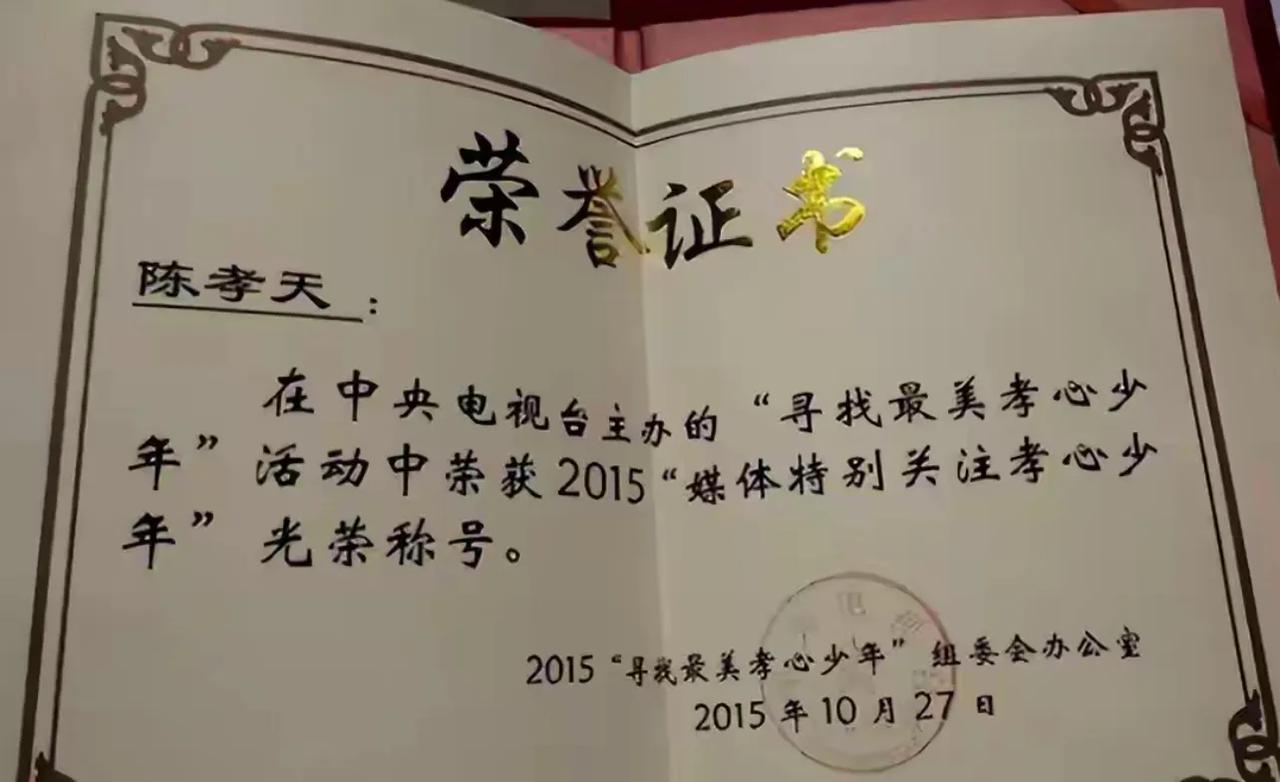 荣誉证书
陈孝天:
在中央电视台主办的“寻找最美孝心少
年”活动中荣获2015“媒体特别关注孝心少
年”光荣称号。
2015“寻找最美孝心少年”组委会办公室
2015年10月27日